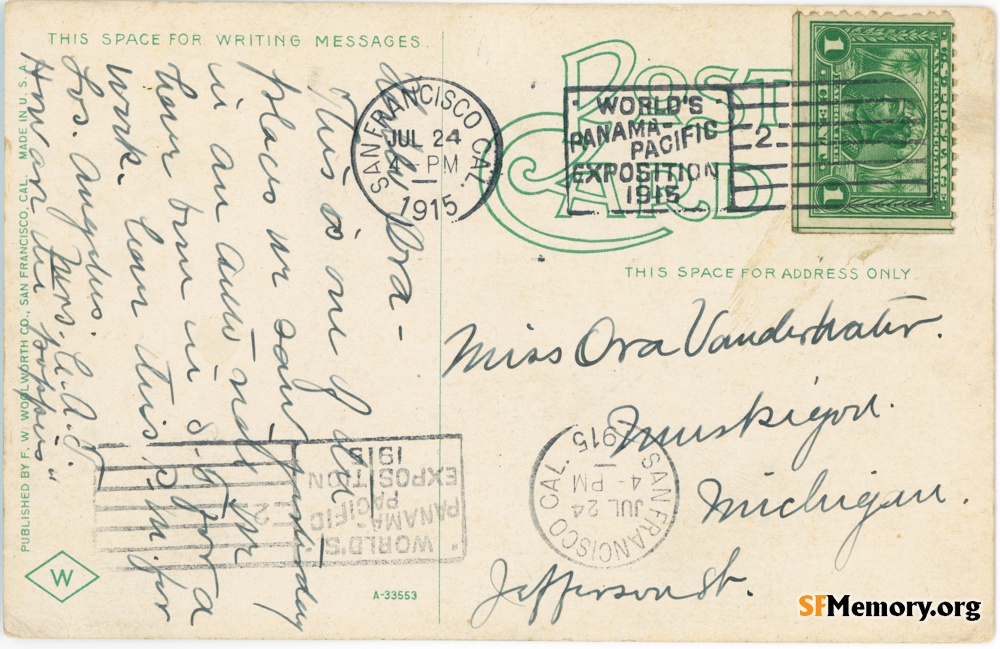 THIS SPACE FOR WRITING MESSAGES.
POST CARD
THIS SPACE FOR ADDRESS ONLY
SAN FRANCISCO CAL.
JUL 24
4 - PM
1915
WORLD'S
PANAMA-
PACIFIC
EXPOSITION
1915
2
1 1
Ora -
This is one of the
places we saw yesterday
in an auto ride. We
have been in S.F. for a
work. Leave this P.M. for
Los. Angelus.
Mrs. C.A.S.
How are the "poppies"
Miss Ora Vanderwater.
Muskegon.
Michigan.
Jefferson St.
SAN FRANCISCO CAL.
JUL 24
4 - PM
1915
WORLD'S
PANAMA-
PACIFIC
EXPOSITION
1915
2
PUBLISHED BY F. W. WOOLWORTH CO., SAN FRANCISCO, CAL. MADE IN U. S. A.
W
A-33553
SFMemory.org